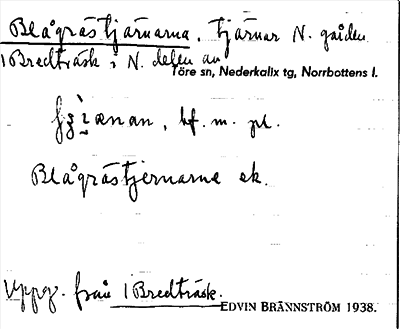 Blågrästjärnarna, tjärnar N. gården
1 Bredträsk i N. delen av
Töre sn, Nederkalix tg, Norrbottens l.
bf. m. pl.
Blågrästjernarne ek.
Uppg. från 1 Bredträsk.
EDVIN BRÄNNSTRÖM 1938.